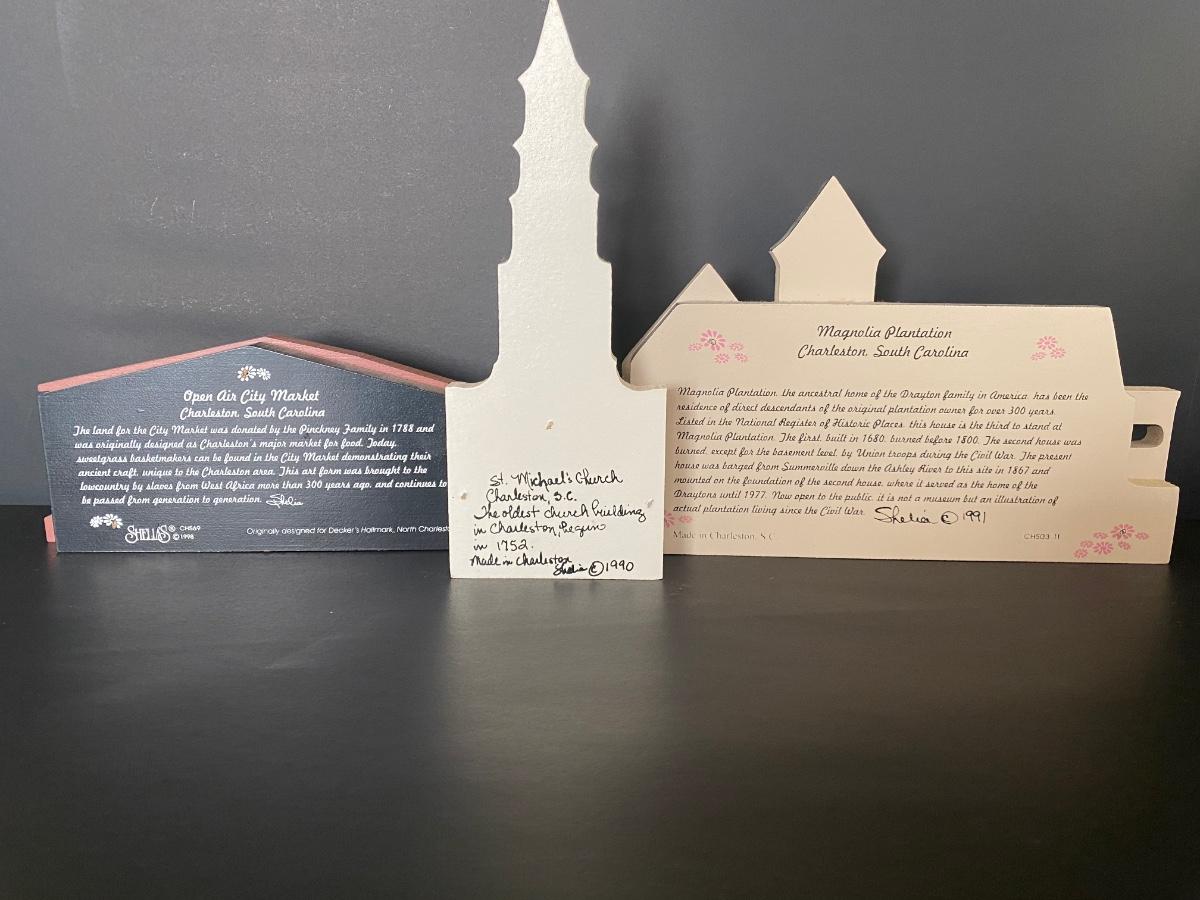 Open Air City Market
Charleston, South Carolina
The land for the City Market was donated by the Pinckney Family in 1788 and
was originally designed as Charleston's major market for food. Today,
sweetgrass basketmakers can be found in the City Market demonstrating their
ancient craft, unique to the Charleston area. This art form was brought to the
lowcountry by slaves from West Africa more than 300 years ago, and continues to
be passed from generation to generation. Shelia
SHELIA'S® CHS69
© 1998
Originally designed for Decker's Hallmark, North Charlest
St. Michael's Church
Charleston, S.C.
The oldest church building
in Charleston, begun
in 1752.
Made in Charleston
Shelia © 1990
Magnolia Plantation
Charleston, South Carolina
Magnolia Plantation, the ancestral home of the Drayton family in America, has been the
residence of direct descendants of the original plantation owner for over 300 years.
Listed in the National Register of Historic Places, this house is the third to stand at
Magnolia Plantation. The first, built in 1680, burned before 1800. The second house was
burned, except for the basement level, by Union troops during the Civil War. The present
house was barged from Summerville down the Ashley River to this site in 1867 and
mounted on the foundation of the second house, where it served as the home of the
Draytons until 1977. Now open to the public, it is not a museum but an illustration of
actual plantation living since the Civil War. Shelia © 1991
Made in Charleston, S.C.
CHS03 II